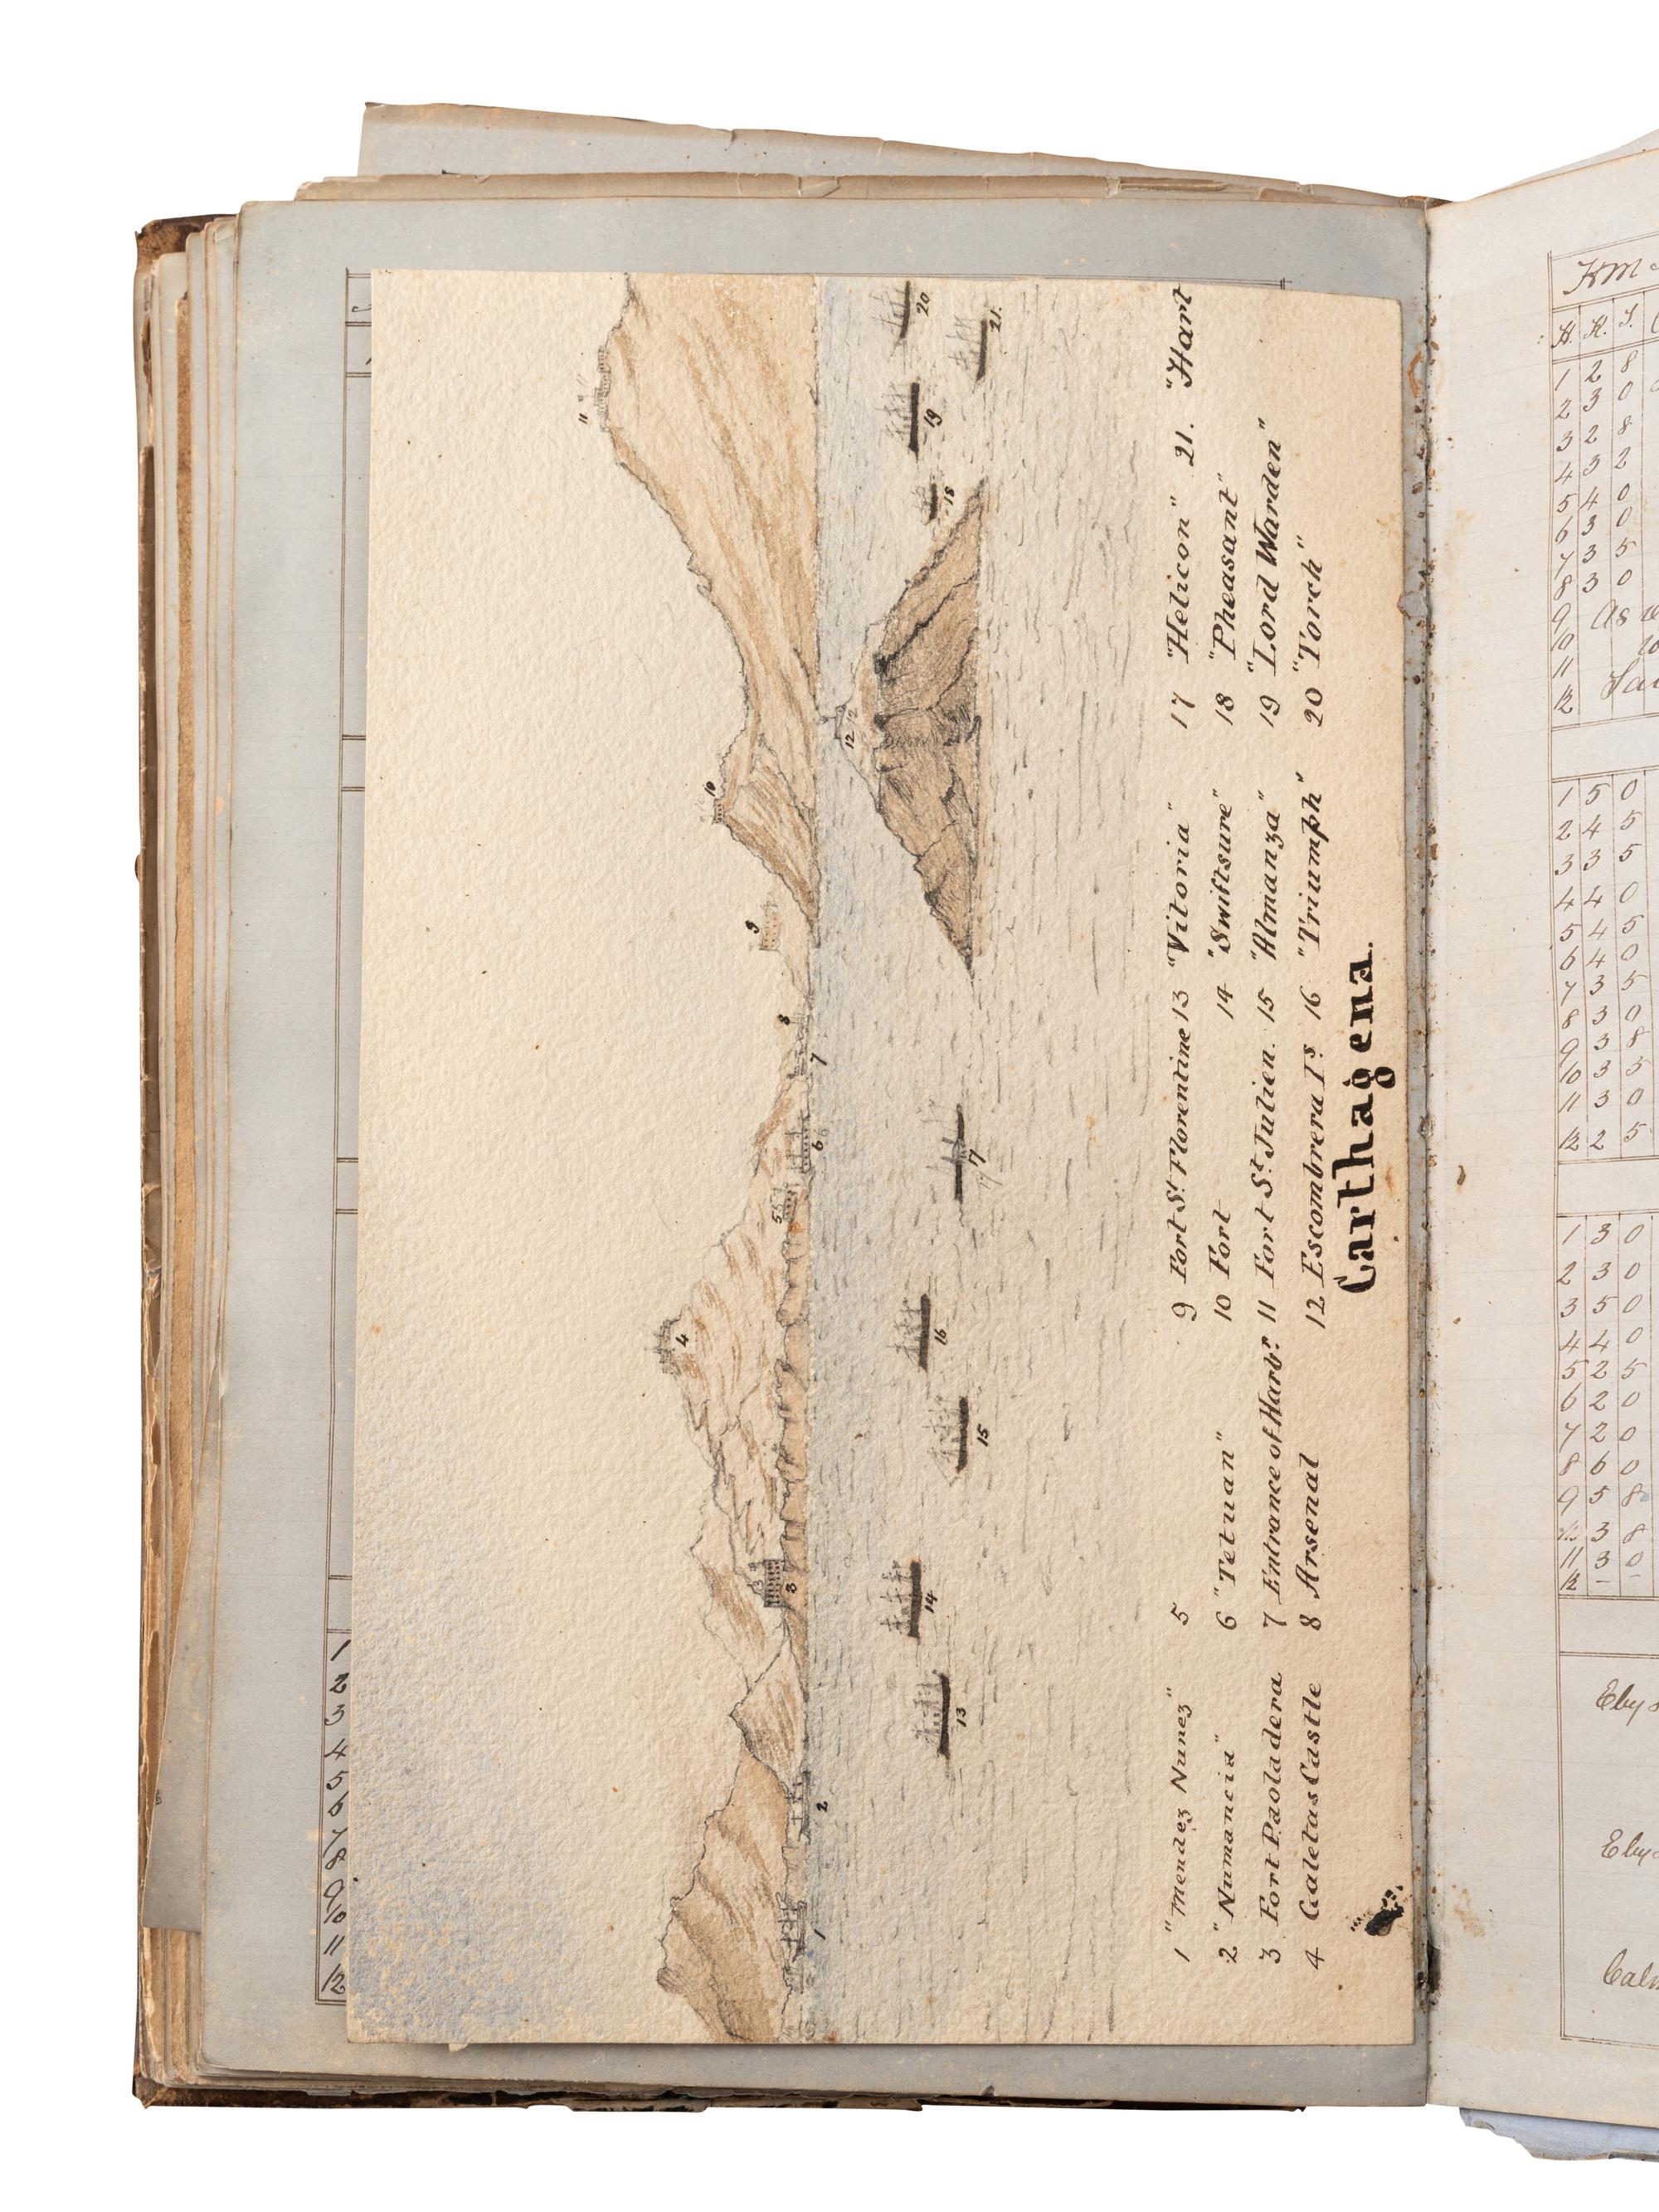 11
10
9
8
7
6
5
4
3
2
1
12
13
14
15
16
17
18
19
20
21.
1 "Mendez Nunez" 5 9 Fort St. Florentine 13 "Vitoria" 17 "Helicon" 21. "Hart
2 "Numancia" 6 "Tetuan" 10 Fort 14 "Swiftsure" 18 "Pheasant"
3 Fort Paoladera 7 Entrance of Harbr. 11 Fort St. Julien. 15 "Almanza" 19 "Lord Warden"
4 Galetas Castle 8 Arsenal 12 Escombrera Is. 16 "Triumph" 20 "Torch"
Carthagena.
1
2
3
4
5
6
7
8
9
10
11
12
H. K. J.
1 2 8
2 3 0
3 2 8
4 3 2
5 4 0
6 3 0
7 3 5
8 3 0
9 As
10
11
12
1 5 0
2 4 5
3 3 5
4 4 0
5 4 5
6 4 0
7 3 5
8 3 0
9 3 8
10 3 5
11 3 0
12 2 5
1 3 0
2 3 0
3 5 0
4 4 0
5 2 5
6 2 0
7 2 0
8 6 0
9 5 8
10 3 8
11 3 0
12 – –